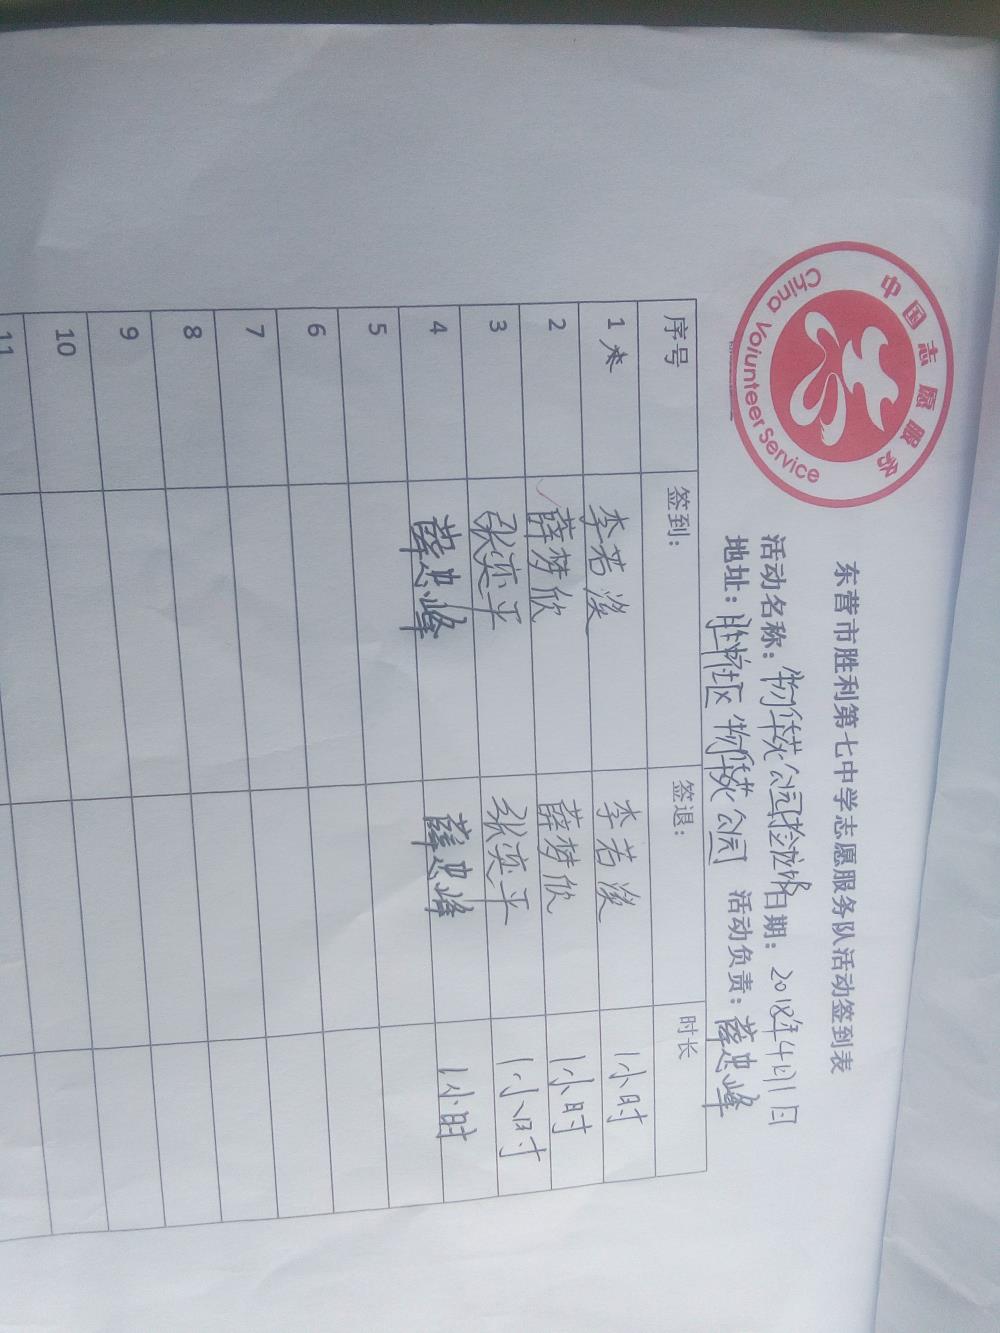 中国志愿服务
China Voiunteer Service
东营市胜利第七中学志愿服务队活动签到表
活动名称：物华苑公园捡垃圾 日期：2018年4月1日
地址：胜虹社区物华苑公园 活动负责：薛忠峰
序号 签到： 签退： 时长
1 李若溪 李若溪 1小时
2 薛梦欣 薛梦欣 1小时
3 张奕平 张奕平 1小时
4 薛忠峰 薛忠峰 1小时
5
6
7
8
9
10
11